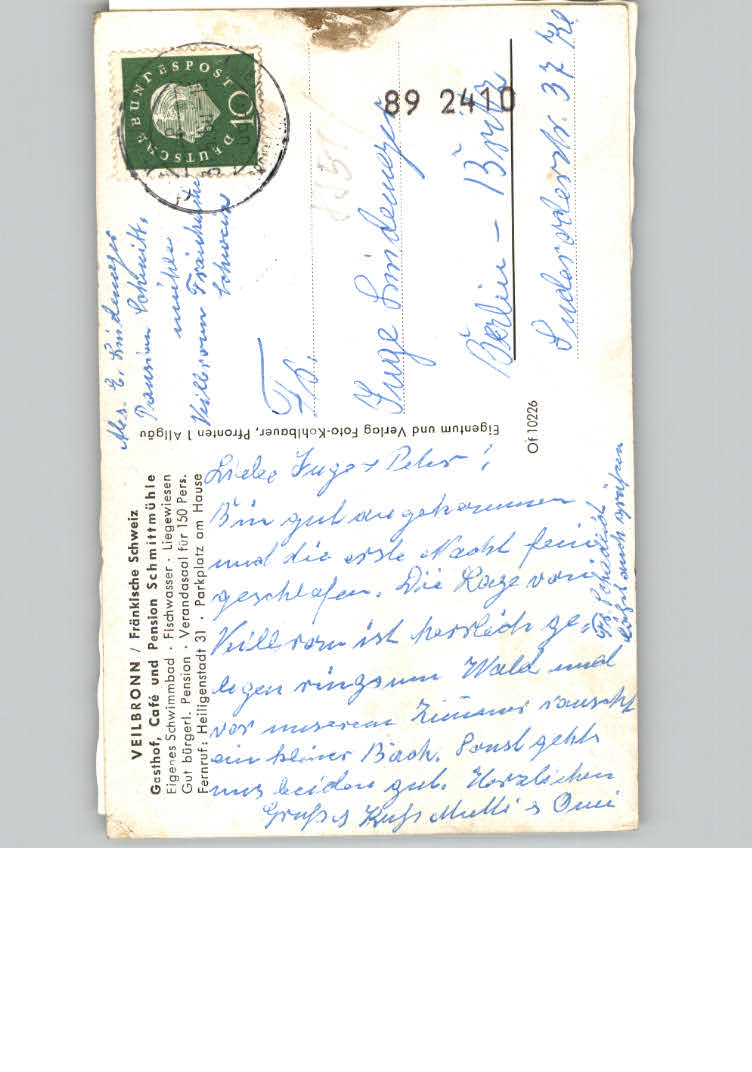 VEILBRONN / Fränkische Schweiz
Gasthof, Café und Pension Schmittmühle
Eigenes Schwimmbad · Fischwasser · Liegewiesen
Gut bürgerl. Pension · Verandasaal für 150 Pers.
Fernruf: Heiligenstadt 31 · Parkplatz am Hause
Liebe Inge + Peter!
Bin gut angekommen
und die erste Nacht fein
geschlafen. Die Lage von
Veilbronn ist herrlich ge=
legen ringsum Wald und
vor unserem Zimmer rauscht
ein kleiner Bach. Sonst gehts
uns beiden gut. Herzlichen
Gruß Kuß Mutti Omi
läßt auch grüßen
Eigentum und Verlag Foto-Kohlbauer, Pfronten 1 Allgäu
Of 10226
DEUTSCHE BUNDESPOST
10
Abs. E. Lindemeyer
Pension Schmitt-
mühle
Veilbronn Fränkische
Schweiz
Fr.
Inge Lindemeyer
Berlin - Britz
37
89 2410